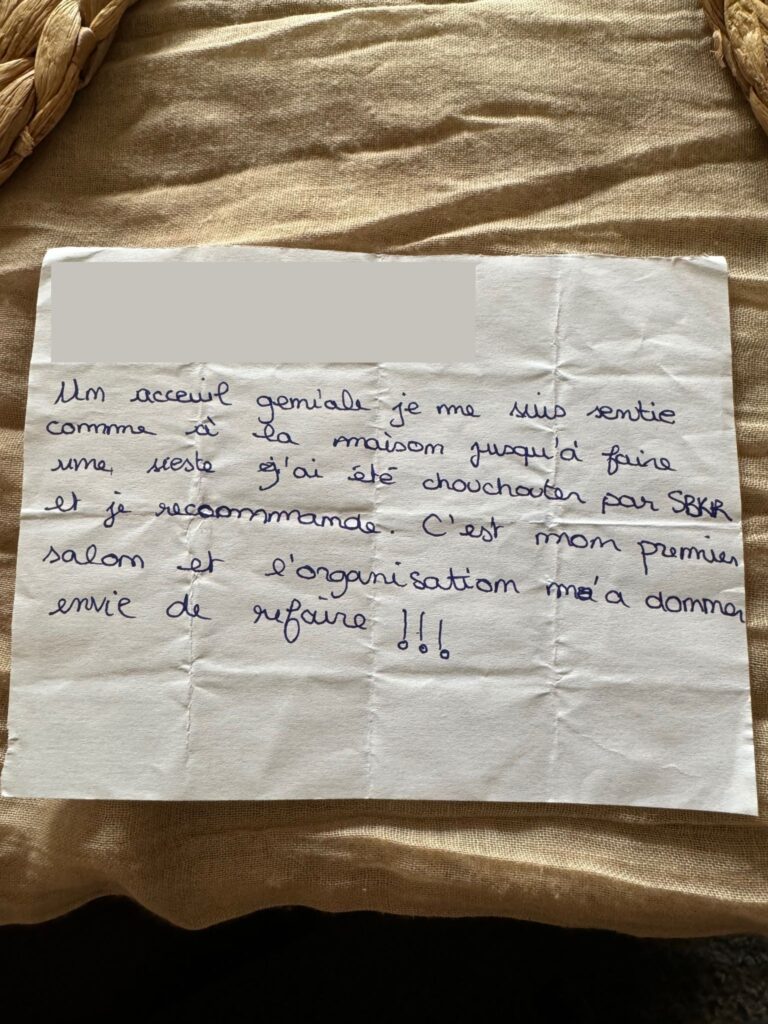 Un acceuil geniale je me suis sentie
comme à la maison jusqu'à faire
une sieste j'ai été chouchouter par SBKR
et je recommande. C'est mon premier
salon et l'organisation m'a donner
envie de refaire !!!